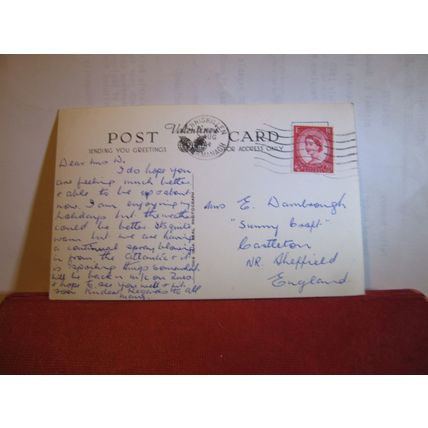 POST Valentines CARD
SENDING YOU GREETINGS FOR ADDRESS ONLY
AUG
Dear Mrs D.
I do hope you
are feeling much better
& able to be up & about
now. I am enjoying my
holidays but the weather
could be better. It's quite
warm but we are having
a continual spray blowing
in from the Atlantic & it
is spoiling things somewhat
will be back in
& hope to see you well &
soon Kindest Regards to all
Mrs E. Dambrough
"Sunny Croft"
Castleton
NR. Sheffield
England